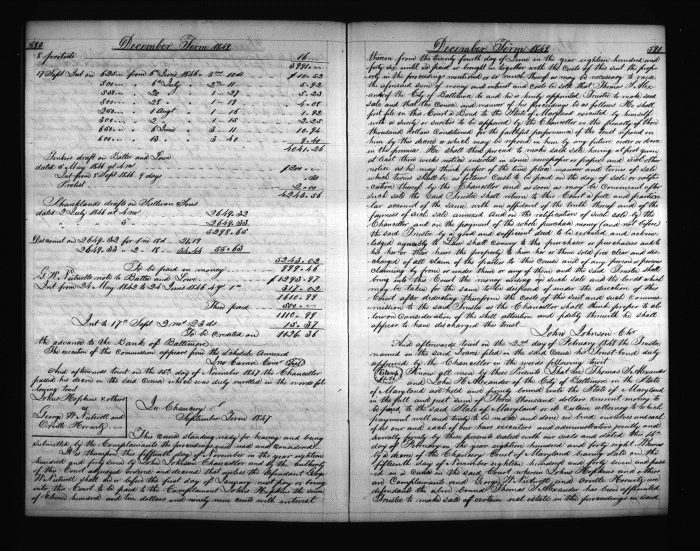 580
December Term 1848
8 protests 16
3991.
17 Sept Int on 625 from 6 June 1846 3 m 10 d $10.52
500 6 July 2 11 5.92
538 21 1 27 5.23
500 28 1 19 4.08
250 1 Augt 1 16 1.92
500 2 1 15 2.25
650 6 June 3 11 10.94
500 13 3 40 9.40
4041.26
draft on Balto and
dated 6 May 1846 at 4 mo $200
Int from 8 Sept 1846 9 days .30
Protest 2.00
4243.56
Shanklands draft on Sullivan & Sons
dated 2 July 1846 at 4 mo 2649.32
5 2649.33
5298.65
Discount on 2649.32 for 1 m 18 d 21.19
2649.33 2 18 34.44 55.63
5243.02
To be paid in money 999.46
G. W. Nutwells note to Balto and
Int from 24 May 1842 to 24 June 1846 317.02
1610.99
Then paid 500
1110.99
Int to 17th Sept 2 m 23 ds 15.37
To be credited on $1126.36
the advance to the Bank of Baltimore
The execution of the Commission appears from the Schedule Annexed
And afterwards towit on the 15th day of November 1847 the Chancellor
passed his decree in the said Cause which was duly enrolled in the words fol
lowing towit
Johns Hopkins & others
vs
George W Nutwell and
Orville Horwitz
In Chancery
September Term 1847
This Cause standing ready for hearing and being
submitted by the Complainants the proceedings were read and considered
It is thereupon this fifteenth day of November in the year eighteen
hundred and forty seven by John Johnson Chancellor and by the authority
of this Court adjudged ordered and decreed that unless the defendant George
W Nutwell shall on or before the first day of January next pay or bring
into this Court to be paid to the Complainant Johns Hopkins the sum
of Eleven hundred and ten dollars and ninety nine cents with interest
December Term 1848
581
thereon from the twenty fourth day of June in the year eighteen hundred and
forty six until so paid or brought in together with the Costs of this suit the prop
erty in the proceedings mentioned or so much thereof as may be necessary to raise
the aforesaid sum of money and interest and Costs be sold that Thomas S. Alex
ander of the City of Baltimore be and he is hereby appointed Trustee to make said
sale and that the Course and manner of his proceedings be as follows He shall
first file in this Court a Bond to the State of Maryland executed by himself
with a surety or sureties to be approved by the Chancellor in the penalty of three
thousand dollars Conditioned for the faithful performance of the trust reposed in
him by this decree or which may be reposed in him by any future order or decree
in the premises He shall then proceed to make said sale having at first given
at least three weeks notice inserted in some newspaper or papers and such other
notice as he may think proper of the time place manner and terms of sale
which terms shall be as follows Cash to be paid on the day of sale or ratifi
cation thereof by the Chancellor and as soon as may be Convenient after
such sale the said Trustee shall return to this Court a full and particu
lar account of the same with an affidavit of the truth thereof and of the
fairness of such sale annexed and on the ratification of such sale by the
Chancellor and on the payment of the whole purchase money (and not before)
the said Trustee by a good and sufficient deed to be executed and acknow
ledged agreeably to Law shall Convey to the purchaser or purchasers and to
his her or their heirs the property to him her or them sold free clear and dis
charged of all claim of the parties to this Cause and of any person or persons
claiming by from or under them or any of them and the said Trustee shall
bring into this Court the money arising on such sale and the bonds which
may be taken for the same to be disposed of under the direction of this
Court after deducting therefrom the costs of this suit and such Commis
sion to the said Trustee as the Chancellor shall think proper to al
low on Consideration of the skill attention and fidelity wherewith he shall
appear to have discharged his trust
John Johnson Chr
And afterwards towit on the 22nd day of February 1848 the Trustee
named in the said Decree filed in the said Cause his Trust bond duly
approved by the Chancellor in the words following towit
Know all men by these Presents That we Thomas S. Alexander
and John H Alexander of the City of Baltimore in the State
of Maryland are held and firmly bound unto the State of Maryland
in the full and just sum of Three thousand dollars current money
to be paid to the said State of Maryland or its certain attorney to which
payment well and truly to be made and done we bind ourselves and each
of us our and each of our heirs executors and administrators jointly and
severally firmly by these presents sealed with our seals and dated this 14th
day of February in the year eighteen hundred and forty eight Whereas
by a decree of the Chancery Court of Maryland bearing date on the
fifteenth day of November eighteen hundred and forty seven and passed
in a Cause in the said Court wherein Johns Hopkins and others
are Complainants and George W Nutwell and Orville Horwitz are
defendants the above bound Thomas S Alexander has been appointed
Trustee to make sale of certain real estate in the proceedings in said